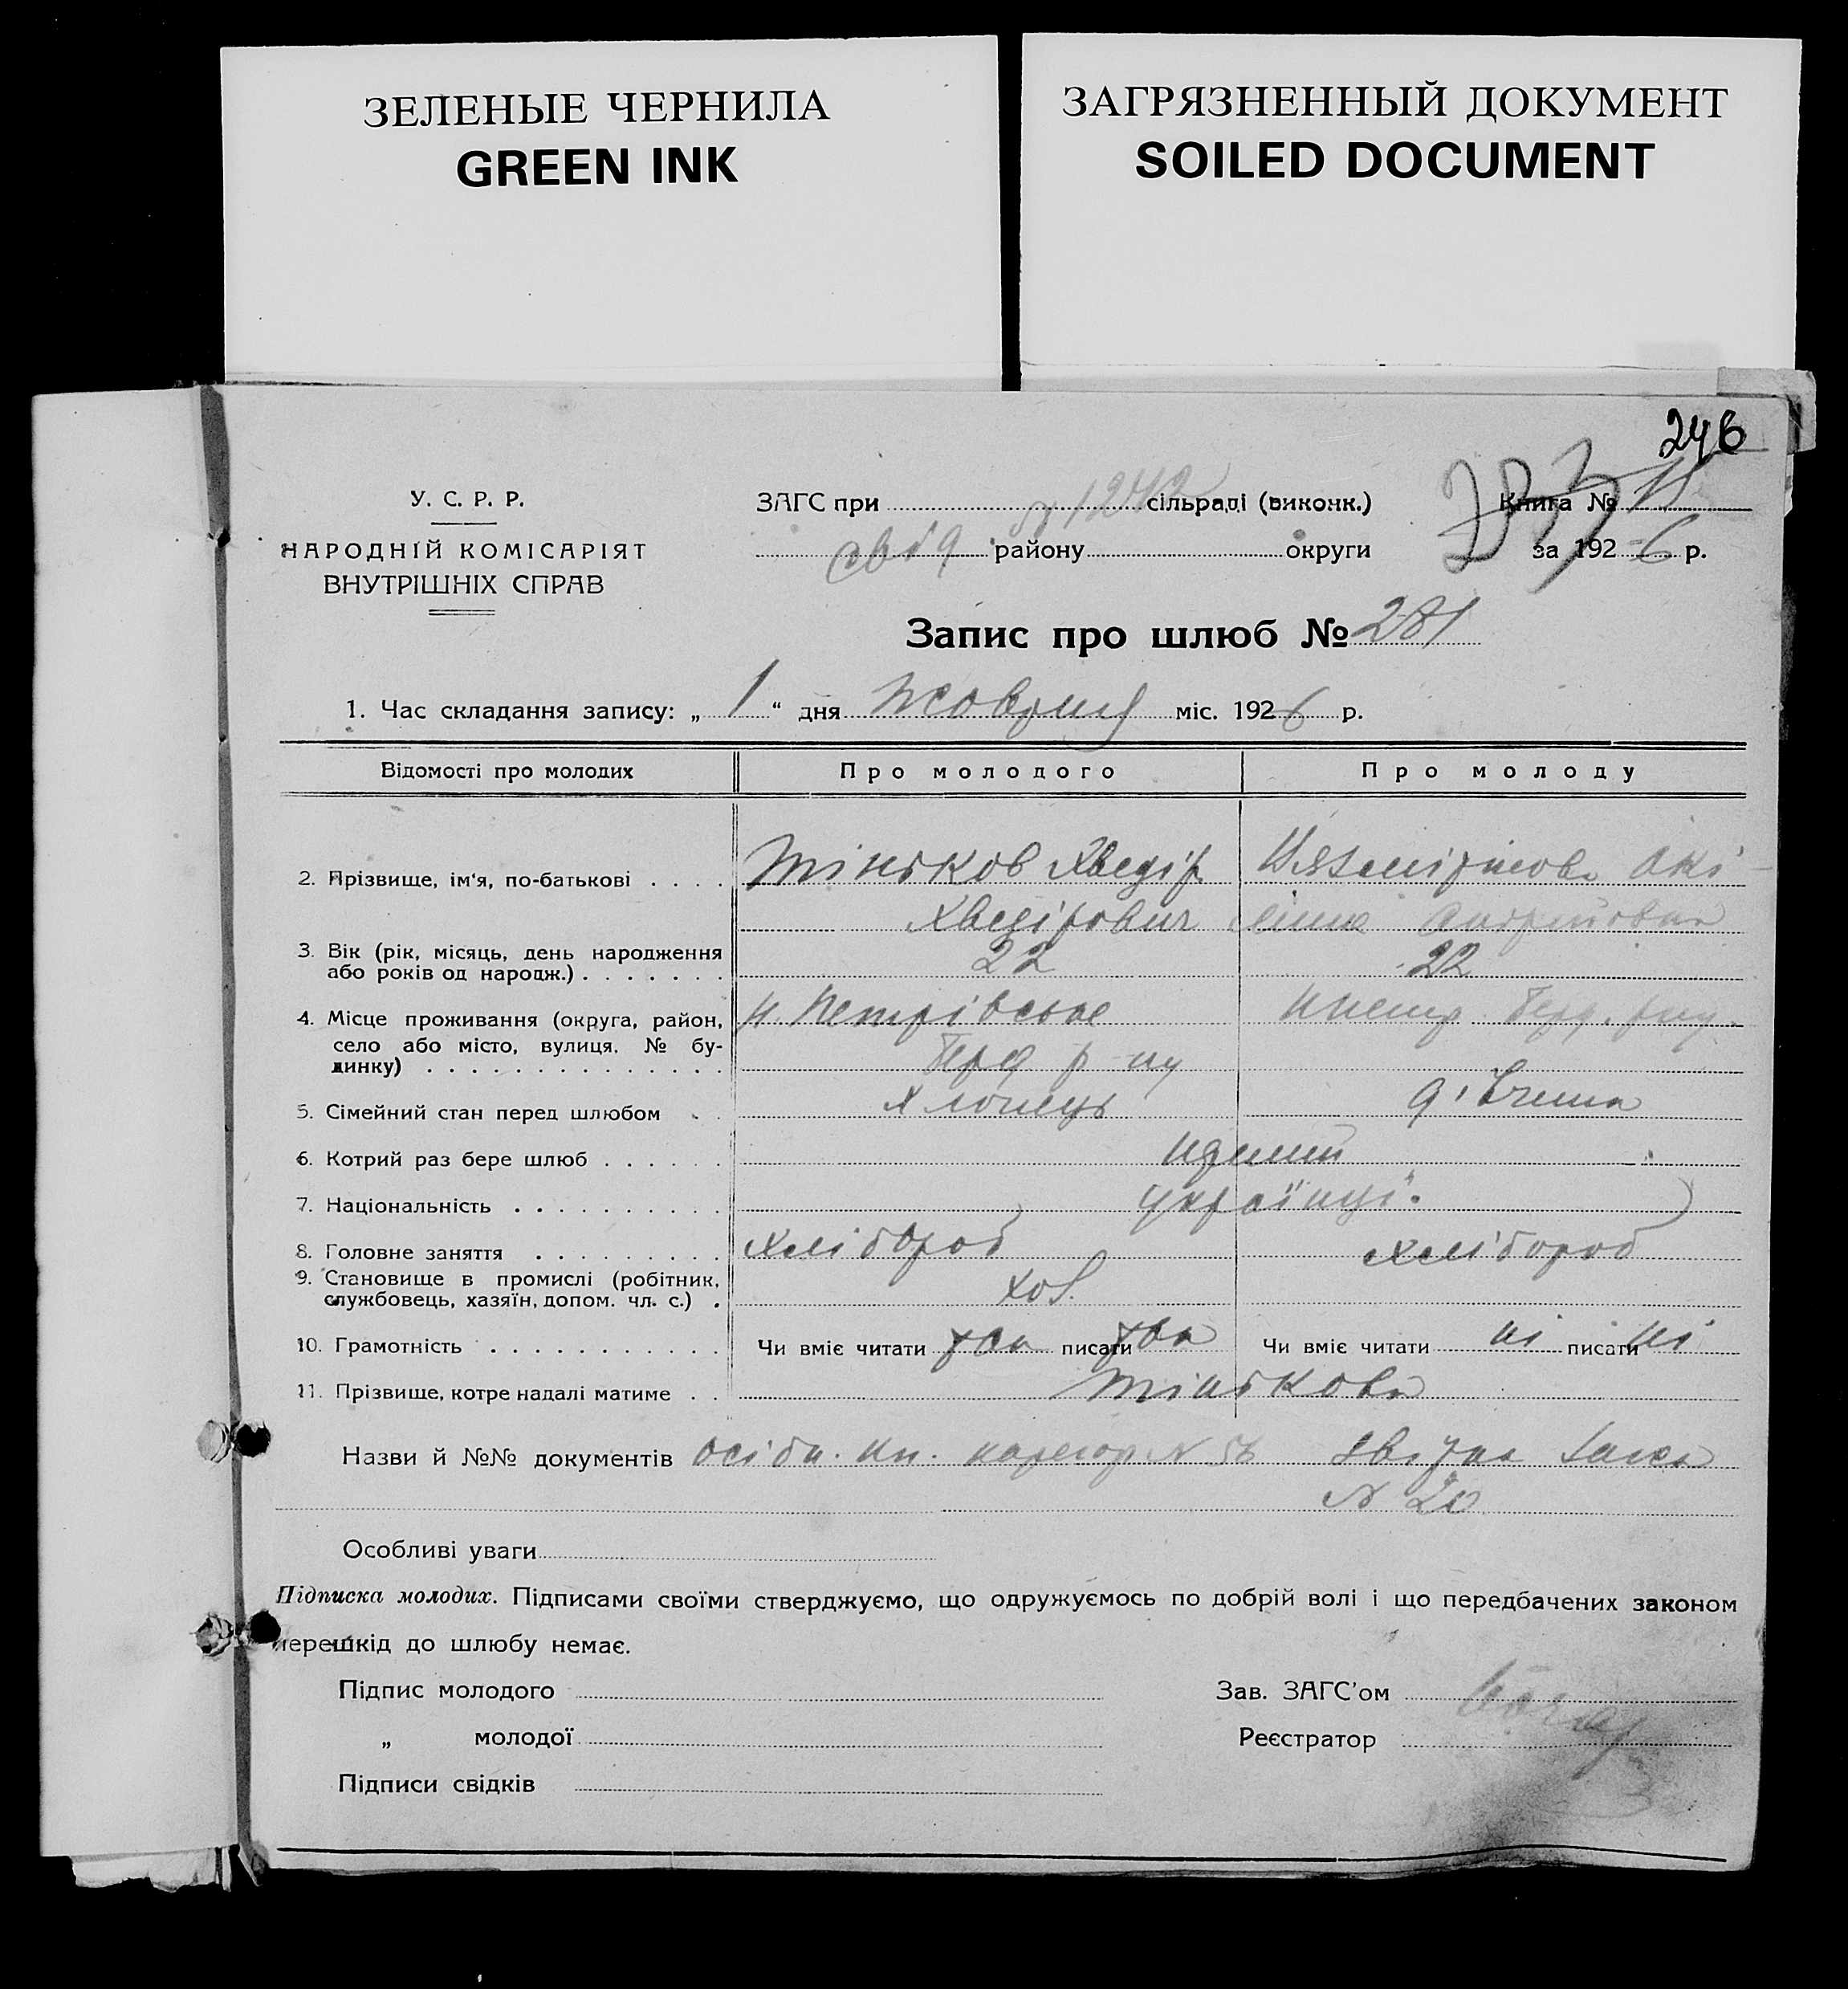 ЗЕЛЕНЫЕ ЧЕРНИЛА
GREEN INK
ЗАГРЯЗНЕННЫЙ ДОКУМЕНТ
SOILED DOCUMENT
246
У. С. Р. Р.
НАРОДНІЙ КОМІСАРІЯТ
ВНУТРІШНІХ СПРАВ
ЗАГС при сільраді (виконк.) Книга №
свід № 1242 району округи за 1926 р.
Запис про шлюб № 281
1. Час складання запису: „ 1 “ дня Жовтня міс. 1926 р.
Відомості про молодих Про молодого Про молоду
2. Прізвище, ім'я, по-батькові . . . . Тіньков Хведір Акі-
Хведірович ліна Андріївна
3. Вік (рік, місяць, день народження
або років од народж.) . . . . . . . 22 22
4. Місце проживання (округа, район, Н. Петрівське
село або місто, вулиця, № бу-
динку) . . . . . . . . . . . . . . Берд р-ну
5. Сімейний стан перед шлюбом . . Хлопець дівчина
6. Котрий раз бере шлюб . . . . . . перший
7. Національність . . . . . . . . . . українці
8. Головне заняття . . . . . . . . . хлібороб хлібороб
9. Становище в промислі (робітник,
службовець, хазяїн, допом. чл. с.) .
10. Грамотність . . . . . . . . . . . Чи вміє читати так писати так Чи вміє читати ні писати ні
11. Прізвище, котре надалі матиме . . Тінькови
Назви й №№ документів особи.
№ 20
Особливі уваги
Підписка молодих. Підписами своїми стверджуємо, що одружуємось по добрій волі і що передбачених законом
перешкід до шлюбу немає.
Підпис молодого Зав. ЗАГС'ом
„ молодої Реєстратор
Підписи свідків